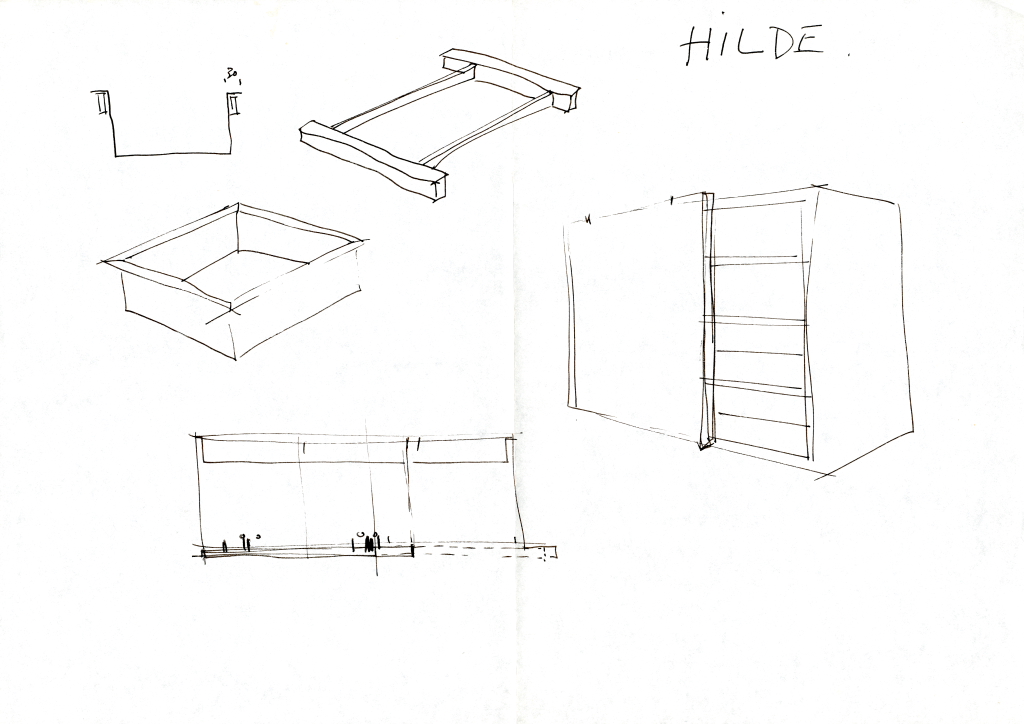 HiLDE.
30